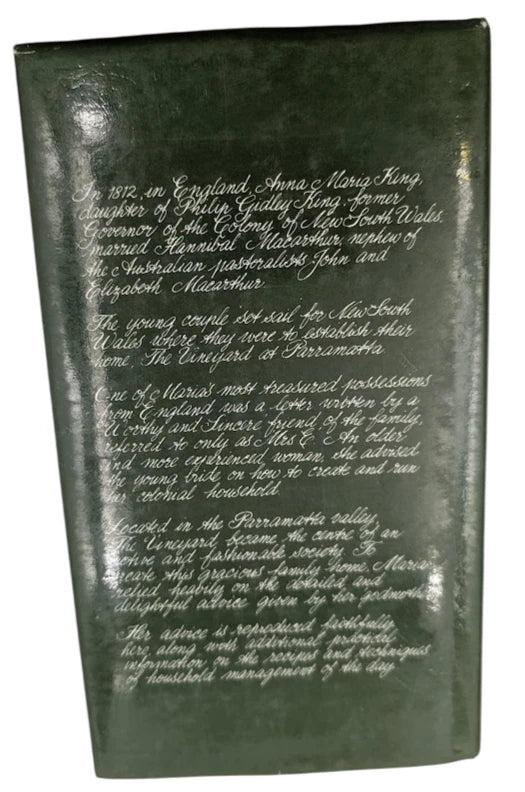 In 1812, in England, Anna Maria King,
daughter of Philip Gidley King, former
Governor of the Colony of New South Wales,
married Hannibal Macarthur, nephew of
the Australian pastoralists John and
Elizabeth Macarthur.
The young couple set sail for New South
Wales where they were to establish their
home, The Vineyard at Parramatta.
One of Maria's most treasured possessions
from England was a letter written by a
Worthy and Sincere friend of the family,
referred to only as Mrs C. An older
and more experienced woman, she advised
the young bride on how to create and run
her colonial household.
Located in the Parramatta valley,
The Vineyard became the centre of an
active and fashionable society. To
create this gracious family home, Maria
relied heavily on the detailed and
delightful advice given by her godmother.
Her advice is reproduced faithfully
here, along with additional practical
information on the recipes and techniques
of household management of the day